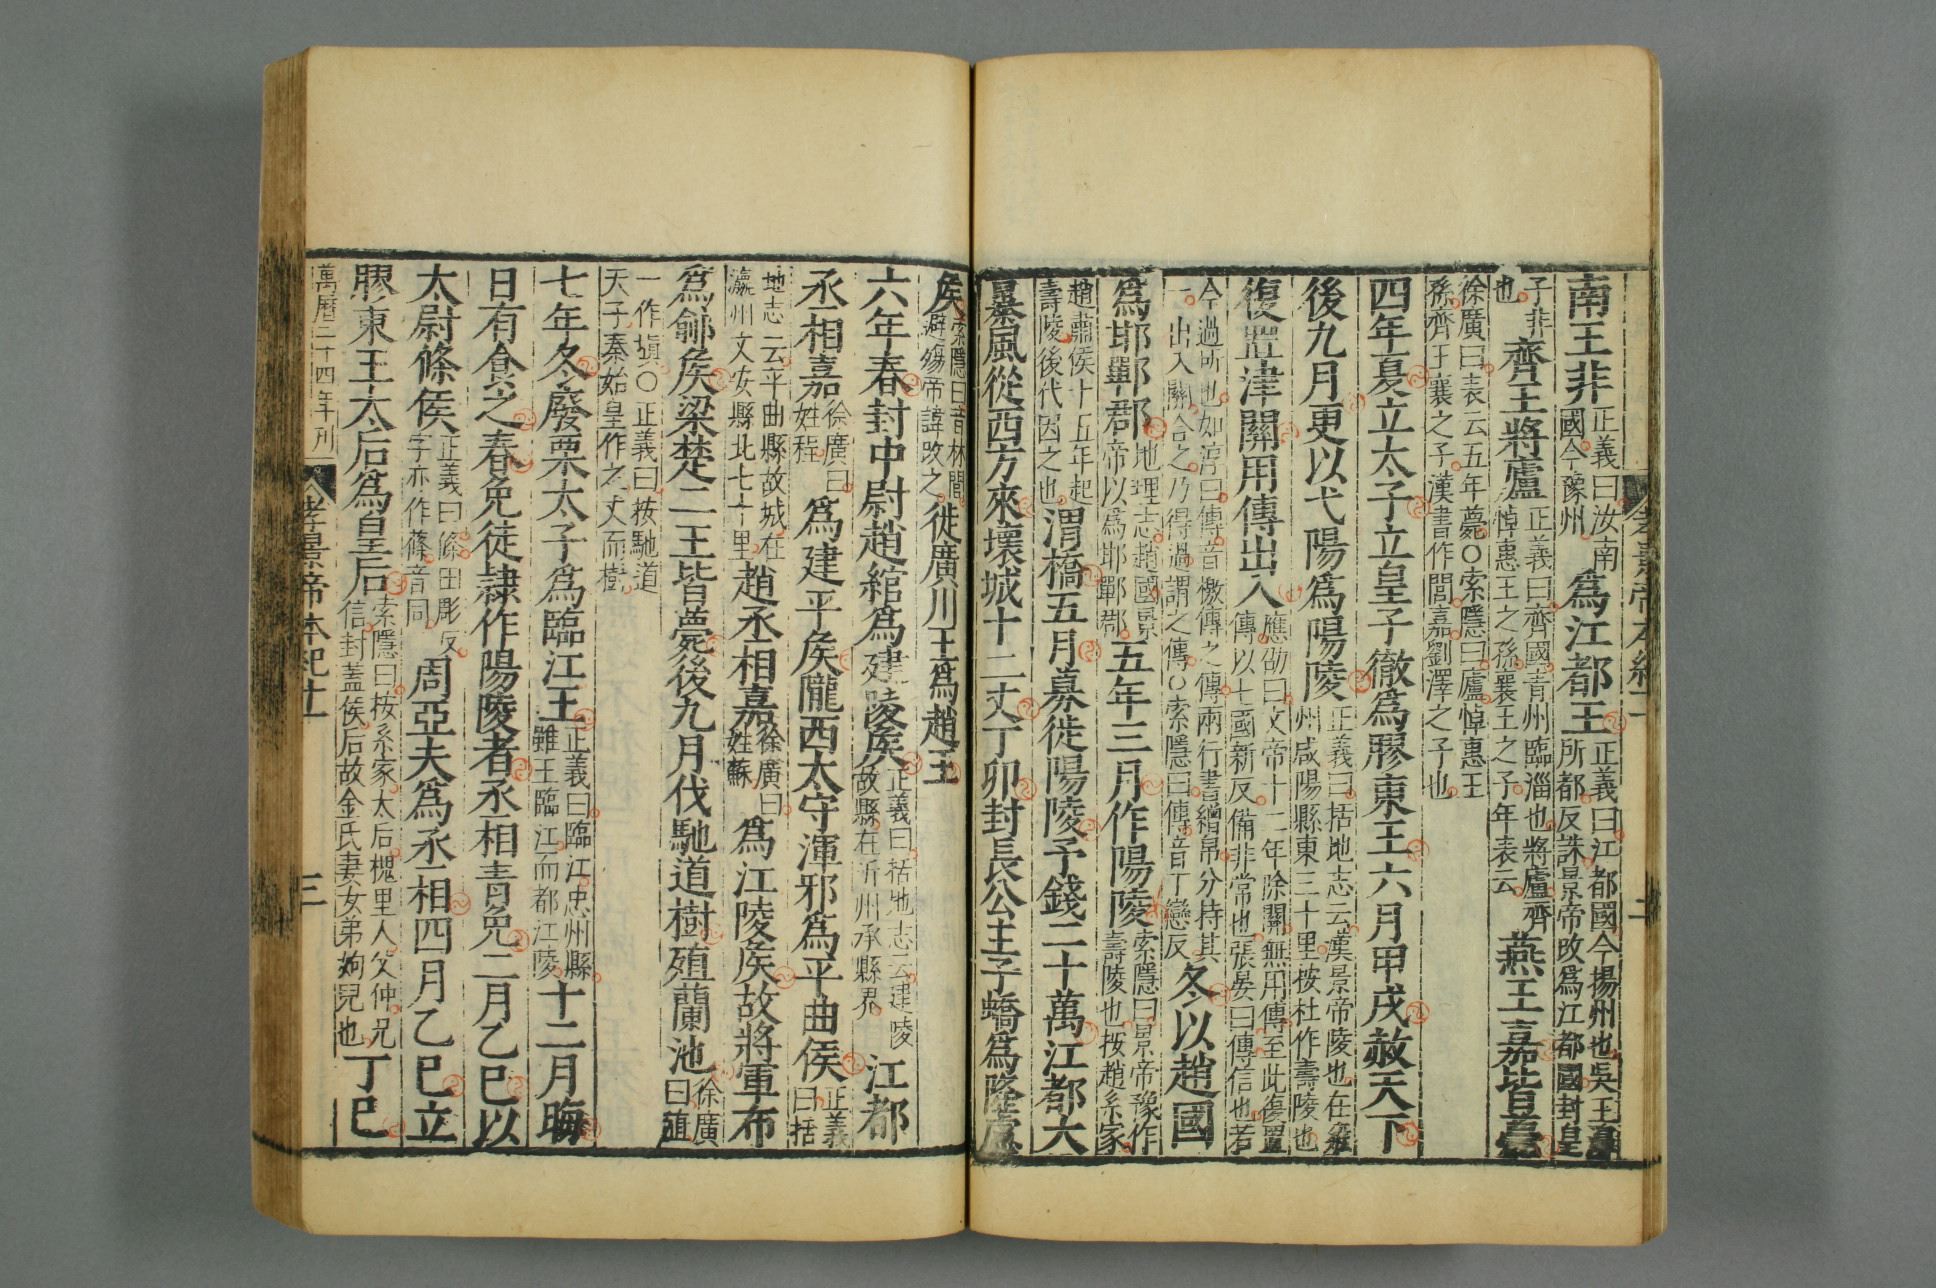 南王非正義曰汝南國今豫州爲江都王正義曰江都國今揚州也吳王濞所都反誅景帝改爲江都國封皇
子非也齊王將廬正義曰齊國青州臨淄也將廬齊悼惠王之孫襄王之子年表云燕王嘉皆薨
徐廣曰表云五年薨〇索隱曰廬悼惠王孫齊王襄之子漢書作閭嘉劉澤之子也
四年夏立太子立皇子徹爲膠東王六月甲戌赦天下
後九月更以弋陽爲陽陵正義曰括地志云漢景帝陵也在雍州咸陽縣東三十里按杜作壽陵也
復置津關用傳出入應劭曰文帝十二年除關無用傳至此復置傳以七國新反備非常也張晏曰傳信也若
今過所也如淳曰傳音檄傳之傳兩行書繒帛分持其一出入關合之乃得過謂之傳〇索隱曰傳音丁戀反冬以趙國
爲邯鄲郡地理志趙國景帝以爲邯鄲郡五年三月作陽陵索隱曰景帝豫作壽陵也按趙系家
趙肅侯十五年起壽陵後代因之也渭橋五月募徙陽陵予錢二十萬江都大
暴風從西方來壞城十二丈丁卯封長公主子蟜爲隆慮
侯索隱曰音林閭避殤帝諱改之徙廣川王爲趙王
六年春封中尉趙綰爲建陵侯正義曰括地志云建陵故縣在沂州承縣界江都
丞相嘉徐廣曰姓程爲建平侯隴西太守渾邪爲平曲侯正義曰括
地志云平曲縣故城在瀛州文安縣北七十里趙丞相嘉徐廣曰姓蘇爲江陵侯故將軍布
爲鄃侯梁楚二王皆薨後九月伐馳道樹殖蘭池徐廣曰殖
一作塡〇正義曰按馳道天子秦始皇作之丈而樹
七年冬廢栗太子爲臨江王正義曰臨江忠州縣雖王臨江而都江陵十二月晦
日有食之春免徒隷作陽陵者丞相青免二月乙巳以
太尉條侯正義曰條田彫反字亦作蓧音同周亞夫爲丞相四月乙巳立
膠東王太后爲皇后索隱曰按系家太后槐里人父仲兄信封蓋侯后故金氏妻女弟姁兒也丁巳
萬曆二十四年刊
孝景帝本紀十一
三